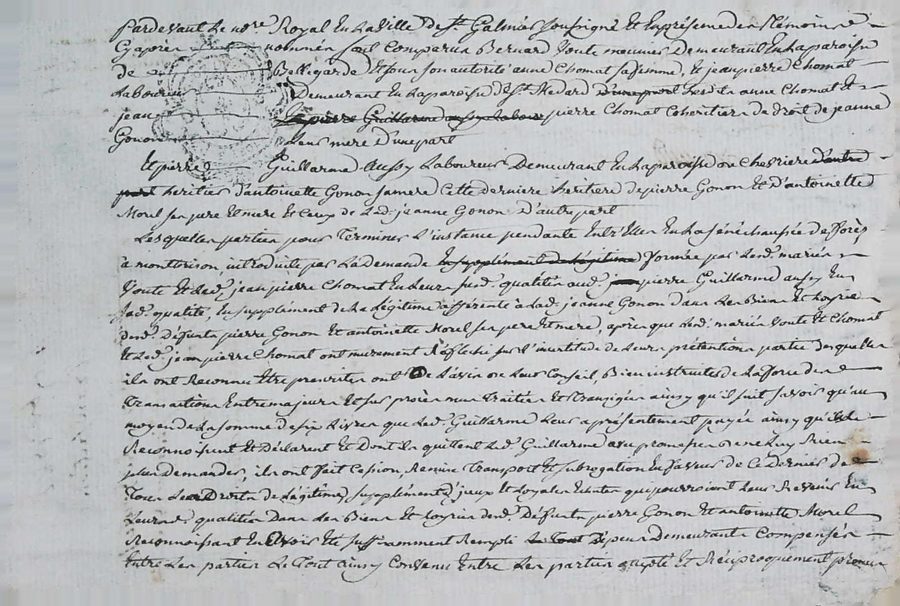 Pardevant Le no.re Royal En La Ville De S.t Galmier soussigné Et En presence des temoins
Cy après nommés sont Comparus Bernard Voute meunier Demeurant En La paroisse
de Bellegarde Et sous son autorité anne Chomat sa femme, Et jean pierre Chomat
Laboureur Demeurant En La paroisse De St Medard d'une part Lesdits anne Chomat Et
jean pierre Guillarme aussy Laboureur pierre Chomat Coheritiers de droit de jeanne
Gonon Leur mere D'une part
Et pierre Guillarme Aussy Laboureur Demeurant En La paroisse de Chevrieres d'autre
part heritier d'antoinette Gonon sa mere Cette derniere heritiere de pierre Gonon Et D'antoinette
Morel ses pere Et mere Et Ceux de Lad. jeanne Gonon D'autre part
Lesquelles parties pour Terminer L'instance pendante Entr'Elles En La sénéchaussée de forès
à montbrison, introduite par La demande En supplement de Légitime formée par Lesd. mariés
Voute Et Led. jean pierre Chomat En Leurs susd. qualités aud. pierre Guillarme aussy En
sad. qualité, En supplement de La Légitime afférente à Lad. jeanne Gonon dans Les Biens Et hoirie
desd. Défunts pierre Gonon Et antoinette Morel ses pere Et mere, après que Lesd. mariés Voute Et Chomat
Et Led. jean pierre Chomat ont murement Réfléchi sur L'incertitude de Leurs prétentions partie desquelles
ils ont Reconnu Etre prescrites ont De L'avis de Leur Conseil, Bien instruits de La force des
transactions Entre majeurs Et sur procès meu Traitté Et transigé ainsy qu'il suit savoir qu'au
moyen de La somme de six Livres que Led. Guillarme Leur a présentement payée ainsy qu'ils Le
Reconnoissent Et déclarent Et Dont ils quittent Led. Guillarme avec promesse de ne Luy Rien
plus Demander, ils ont fait Cession, Remise Transport Et subrogation En faveur de Ce Dernier de
Tous Leurs Droits de Légitime, supplement d'jceux Et Loyales Echutes qui pourroient Leur Revenir En
Leursd. qualités Dans Les Biens Et hoirie desd. Défunts pierre Gonon Et antoinette Morel
Reconnoissant En Etre Et suffisamment Rempli Le Tout Dépens Demeurants Compensés
Entre Les parties Le Tout ainsy Convenu Entre Les parties accepté Et Réciproquement promis